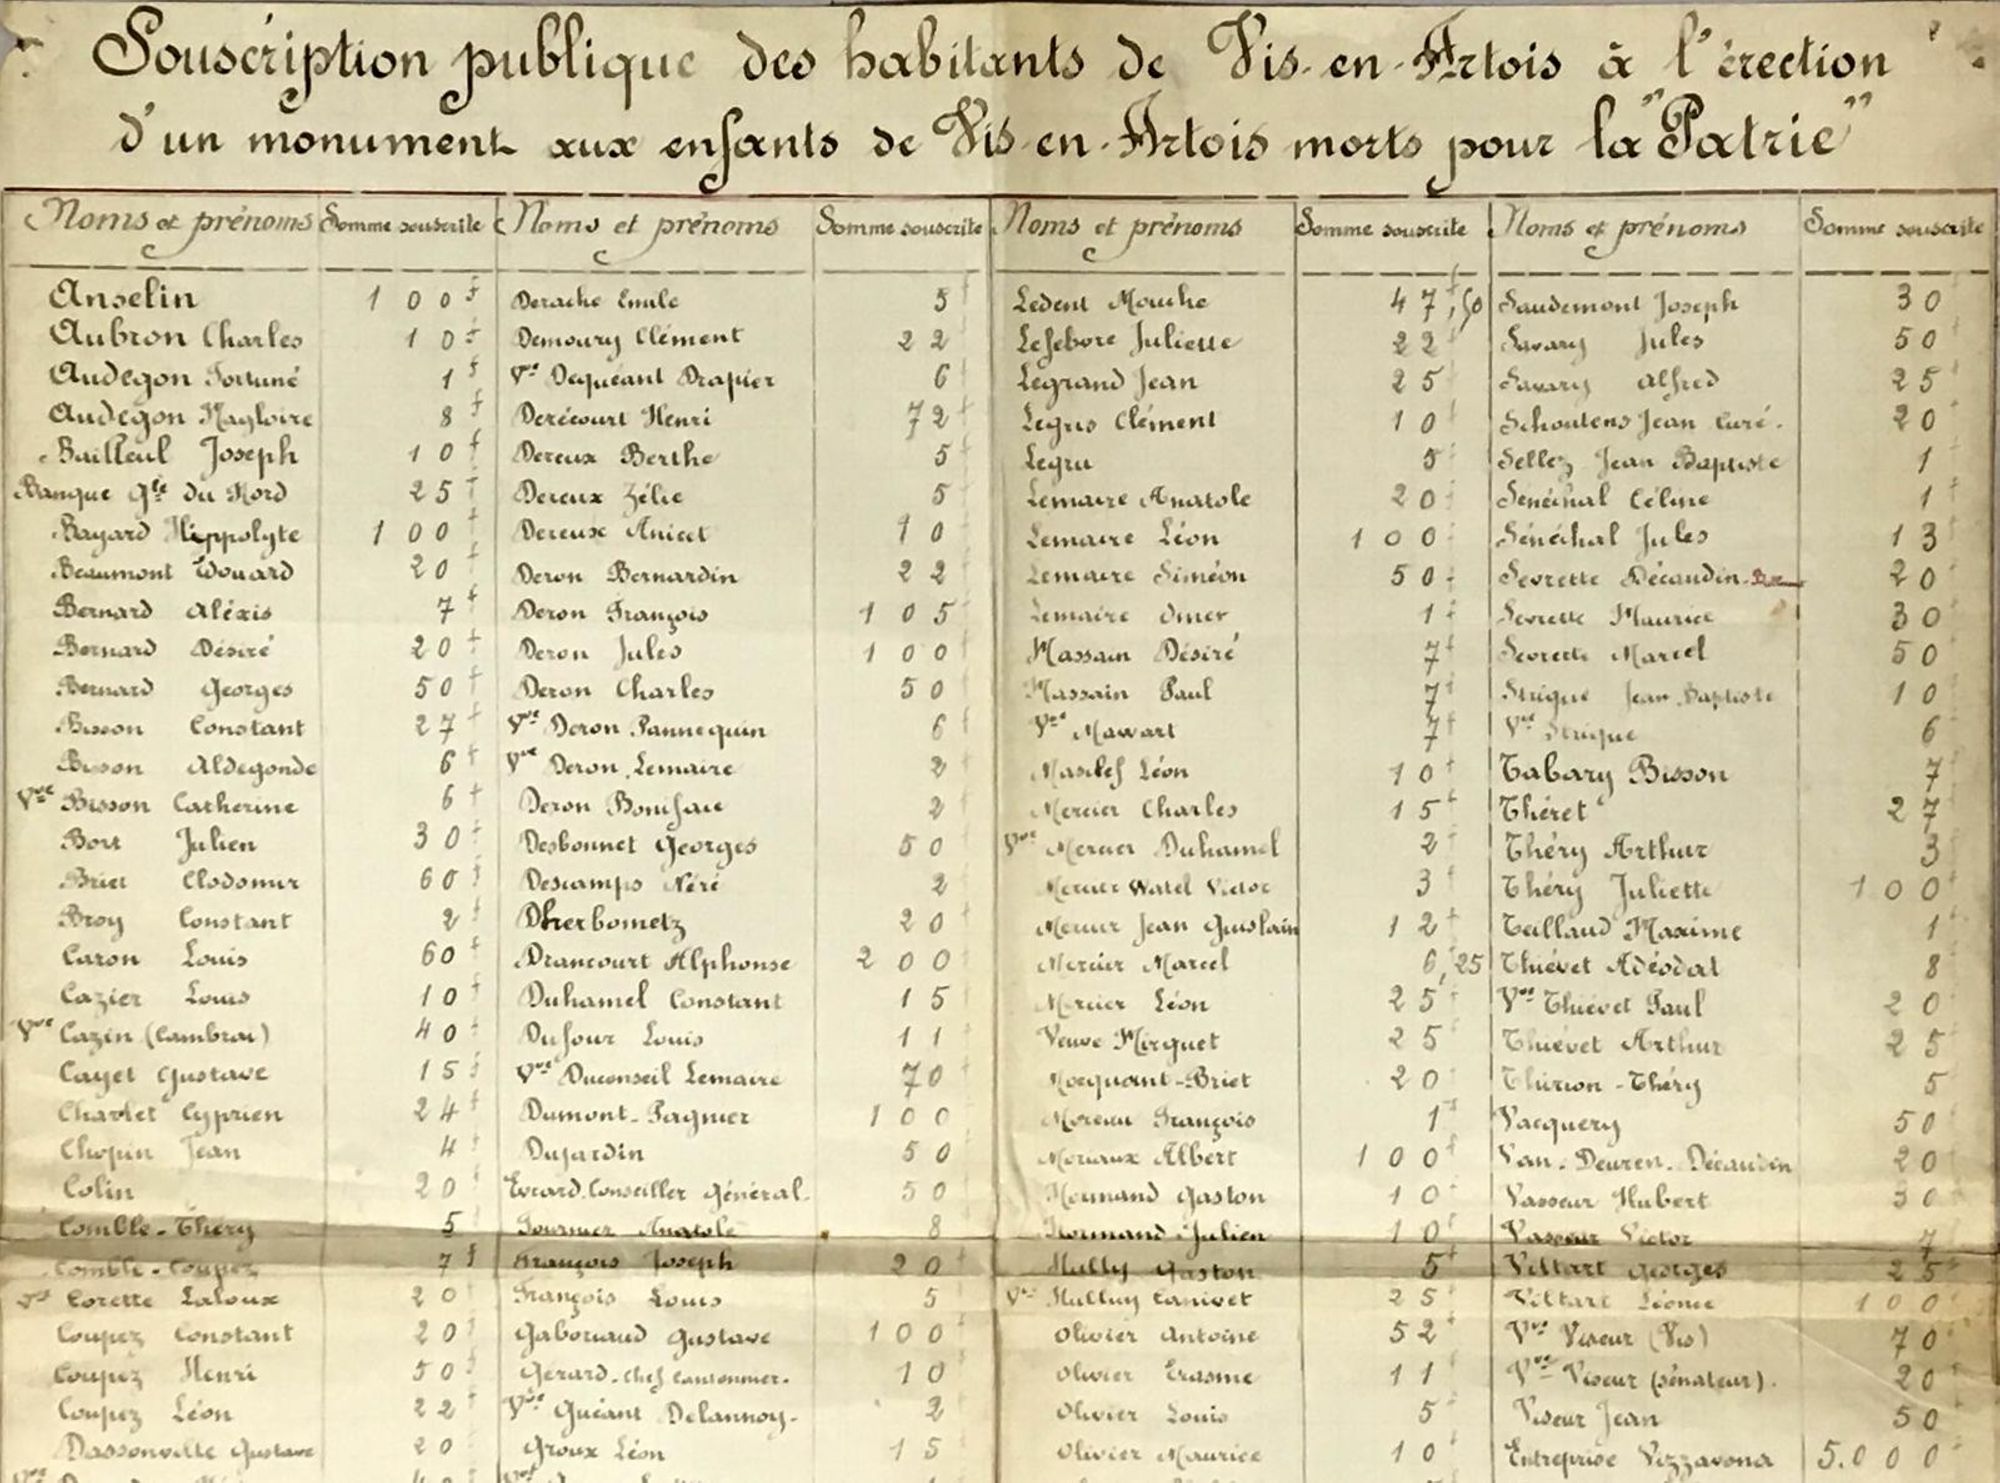 Souscription publique des habitants de Vis-en-Artois à l'érection
d'un monument aux enfants de Vis-en-Artois morts pour la "Patrie"
Noms et prénoms Somme souscrite Noms et prénoms Somme souscrite Noms et prénoms Somme souscrite Noms et prénoms Somme souscrite
Anselin 100f Derache Emile 5f Ledent Mouche 47f,50 Saudemont Joseph 30
Aubron Charles 10f Demoury Clément 22f Lefebvre Juliette 22f Savary Jules 50f
Audegon Fortuné 1f Vve Dequéant Drapier 6f Legrand Jean 25f Savary Alfred 25f
Audegon Magloire 8f Derécourt Henri 72f Legris Clément 10f Schoutens Jean Curé. 20f
Bailleul Joseph 10f Dereux Berthe 5f Legru 5f Sellez Jean Baptiste 1f
Banque Gle du Nord 25f Dereux Zélie 5f Lemaire Anatole 20f Sénéchal Céline 1f
Bayard Hippolyte 100f Dereux Anicet 10f Lemaire Léon 100f Sénéchal Jules 13f
Beaumont Edouard 20f Deron Bernardin 22f Lemaire Siméon 50f Sevrette Décaudin 20f
Bernard Aléxis 7f Deron François 105f Lemaire Omer 1f Sevrette Maurice 30f
Bernard Désiré 20f Deron Jules 100f Massain Désiré 7f Sevrette Marcel 50
Bernard Georges 50f Deron Charles 50f Massain Paul 7f Strique Jean Baptiste 10f
Bisson Constant 27f Vve Deron Pannequin 6f Vve Mawart 7f Vve Strique 6
Bisson Aldegonde 6f Vve Deron Lemaire 2f Masclef Léon 10f Tabary Bisson 7f
Vve Bisson Catherine 6f Deron Boniface 2f Mercier Charles 15f Théret 27
Bort Julien 30f Desbonnet Georges 50f Vve Mercier Duhamel 2f Théry Arthur 3
Briet Clodomir 60f Descamps Néré 2f Mercier Watel Victor 3f Théry Juliette 100f
Broy Constant 2f Dherbometz 20f Mercier Jean Guislain 12f Teillaud Maxime 1f
Caron Louis 60f Drancourt Alphonse 200f Mercier Marcel 6f,25 Thiévet Adéodat 8f
Cazier Louis 10f Duhamel Constant 15f Mercier Léon 25f Vve Thiévet Paul 20f
Vve Cazin (Cambrai) 40f Dufour Louis 11f Veuve Mirquet 25f Thiévet Arthur 25
Cayet Gustave 15f Vve Duconseil Lemaire 70f Mocquant-Briet 20f Thirion-Théry 5
Charlet Cyprien 24f Dumont-Pagnier 100f Moreau François 1f Vacquery 50
Chopin Jean 4f Dujardin 50f Moriaux Albert 100f Van-Deuren-Décaudin 20
Colin 20f Evrard Conseiller Général. 50 Normand Gaston 10f Vasseur Hubert 30
Comble-Théry 5f Fournier Anatole 8f Normand Julien 10f Vasseur Victor 7
Comble-Coupez 7f François Joseph 20f Nulluy Gaston 5f Viltart Georges 25f
Vve Corette Laloux 20f François Louis 5 Vve Nulluy Canivet 25f Viltart Léonce 100f
Coupez Constant 20f Gaboriaud Gustave 100f Olivier Antoine 52f Vve Viseur (Vis) 70f
Coupez Henri 50f Gérard-Chef cantonnier. 10f Olivier Erasme 11f Vve Viseur (sénateur). 20f
Coupez Léon 22f Vve Guéant Delannoy. 2f Olivier Louis 5f Viseur Jean 50f
Dassonville Gustave 20f Groux Léon 15f Olivier Maurice 10f Entreprise Vizzavona 5.000f